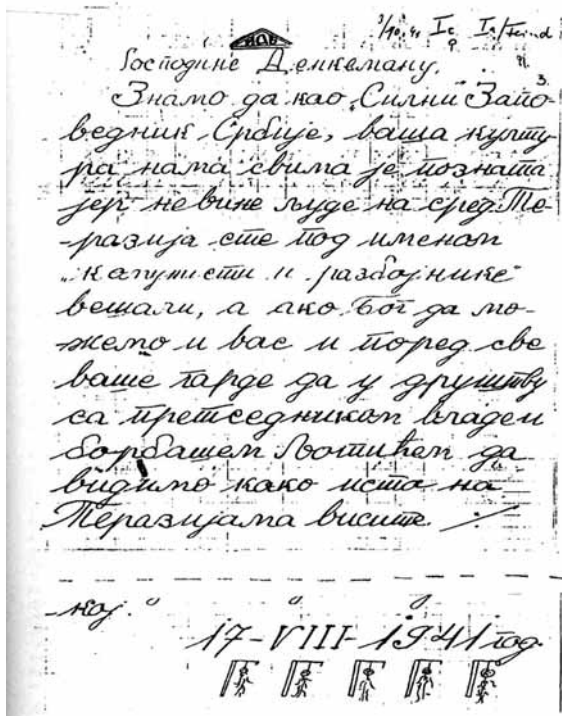 3/10.41 Ic
Господине Денквману,
Знамо да као Силни Запо-
ведник Србије, ваша култу-
ра нама свима је позната
јер невине људе на сред Те-
-разија сте под именом
„камунисти и разбојнике“
вешали, а ако Бог да мо-
-жемо и вас и поред све
ваше гарде да у друштву
са претседником владе и
борбашем Љотићем да
видимо како иста на
Теразијама висите.
-кој.
17-VIII-1941 год.